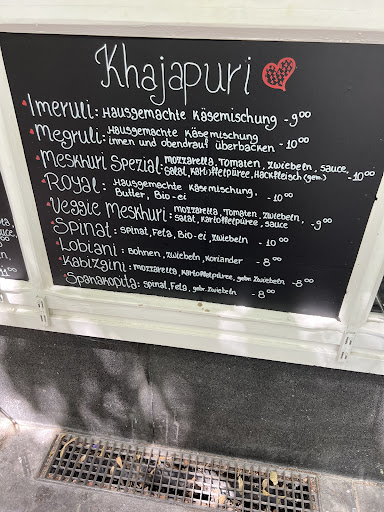 Khajapuri
Imeruli: Hausgemachte Käsemischung - 9⁰⁰
Megruli: Hausgemachte Käsemischung
innen und obendrauf überbacken - 10⁰⁰
Meskhuri Spezial: mozzarella, Tomaten, zwiebeln, sauce,
salat, Kartoffelpüree, Hackfleisch (gem.) - 10⁰⁰
Royal: Hausgemachte Käsemischung,
Butter, Bio-ei - 10⁰⁰
Veggie Meskhuri: mozzarella, Tomaten, zwiebeln,
salat, Kartoffelpüree, sauce - 9⁰⁰
Spinat: spinat, Feta, Bio-ei, zwiebeln - 10⁰⁰
Lobiani: Bohnen, zwiebeln, Koriander - 8⁰⁰
Kabizgini: mozzarella, Kartoffelpüree, gebr. zwiebeln - 8⁰⁰
Spanakopita: spinat, Feta, gebr. zwiebeln - 8⁰⁰